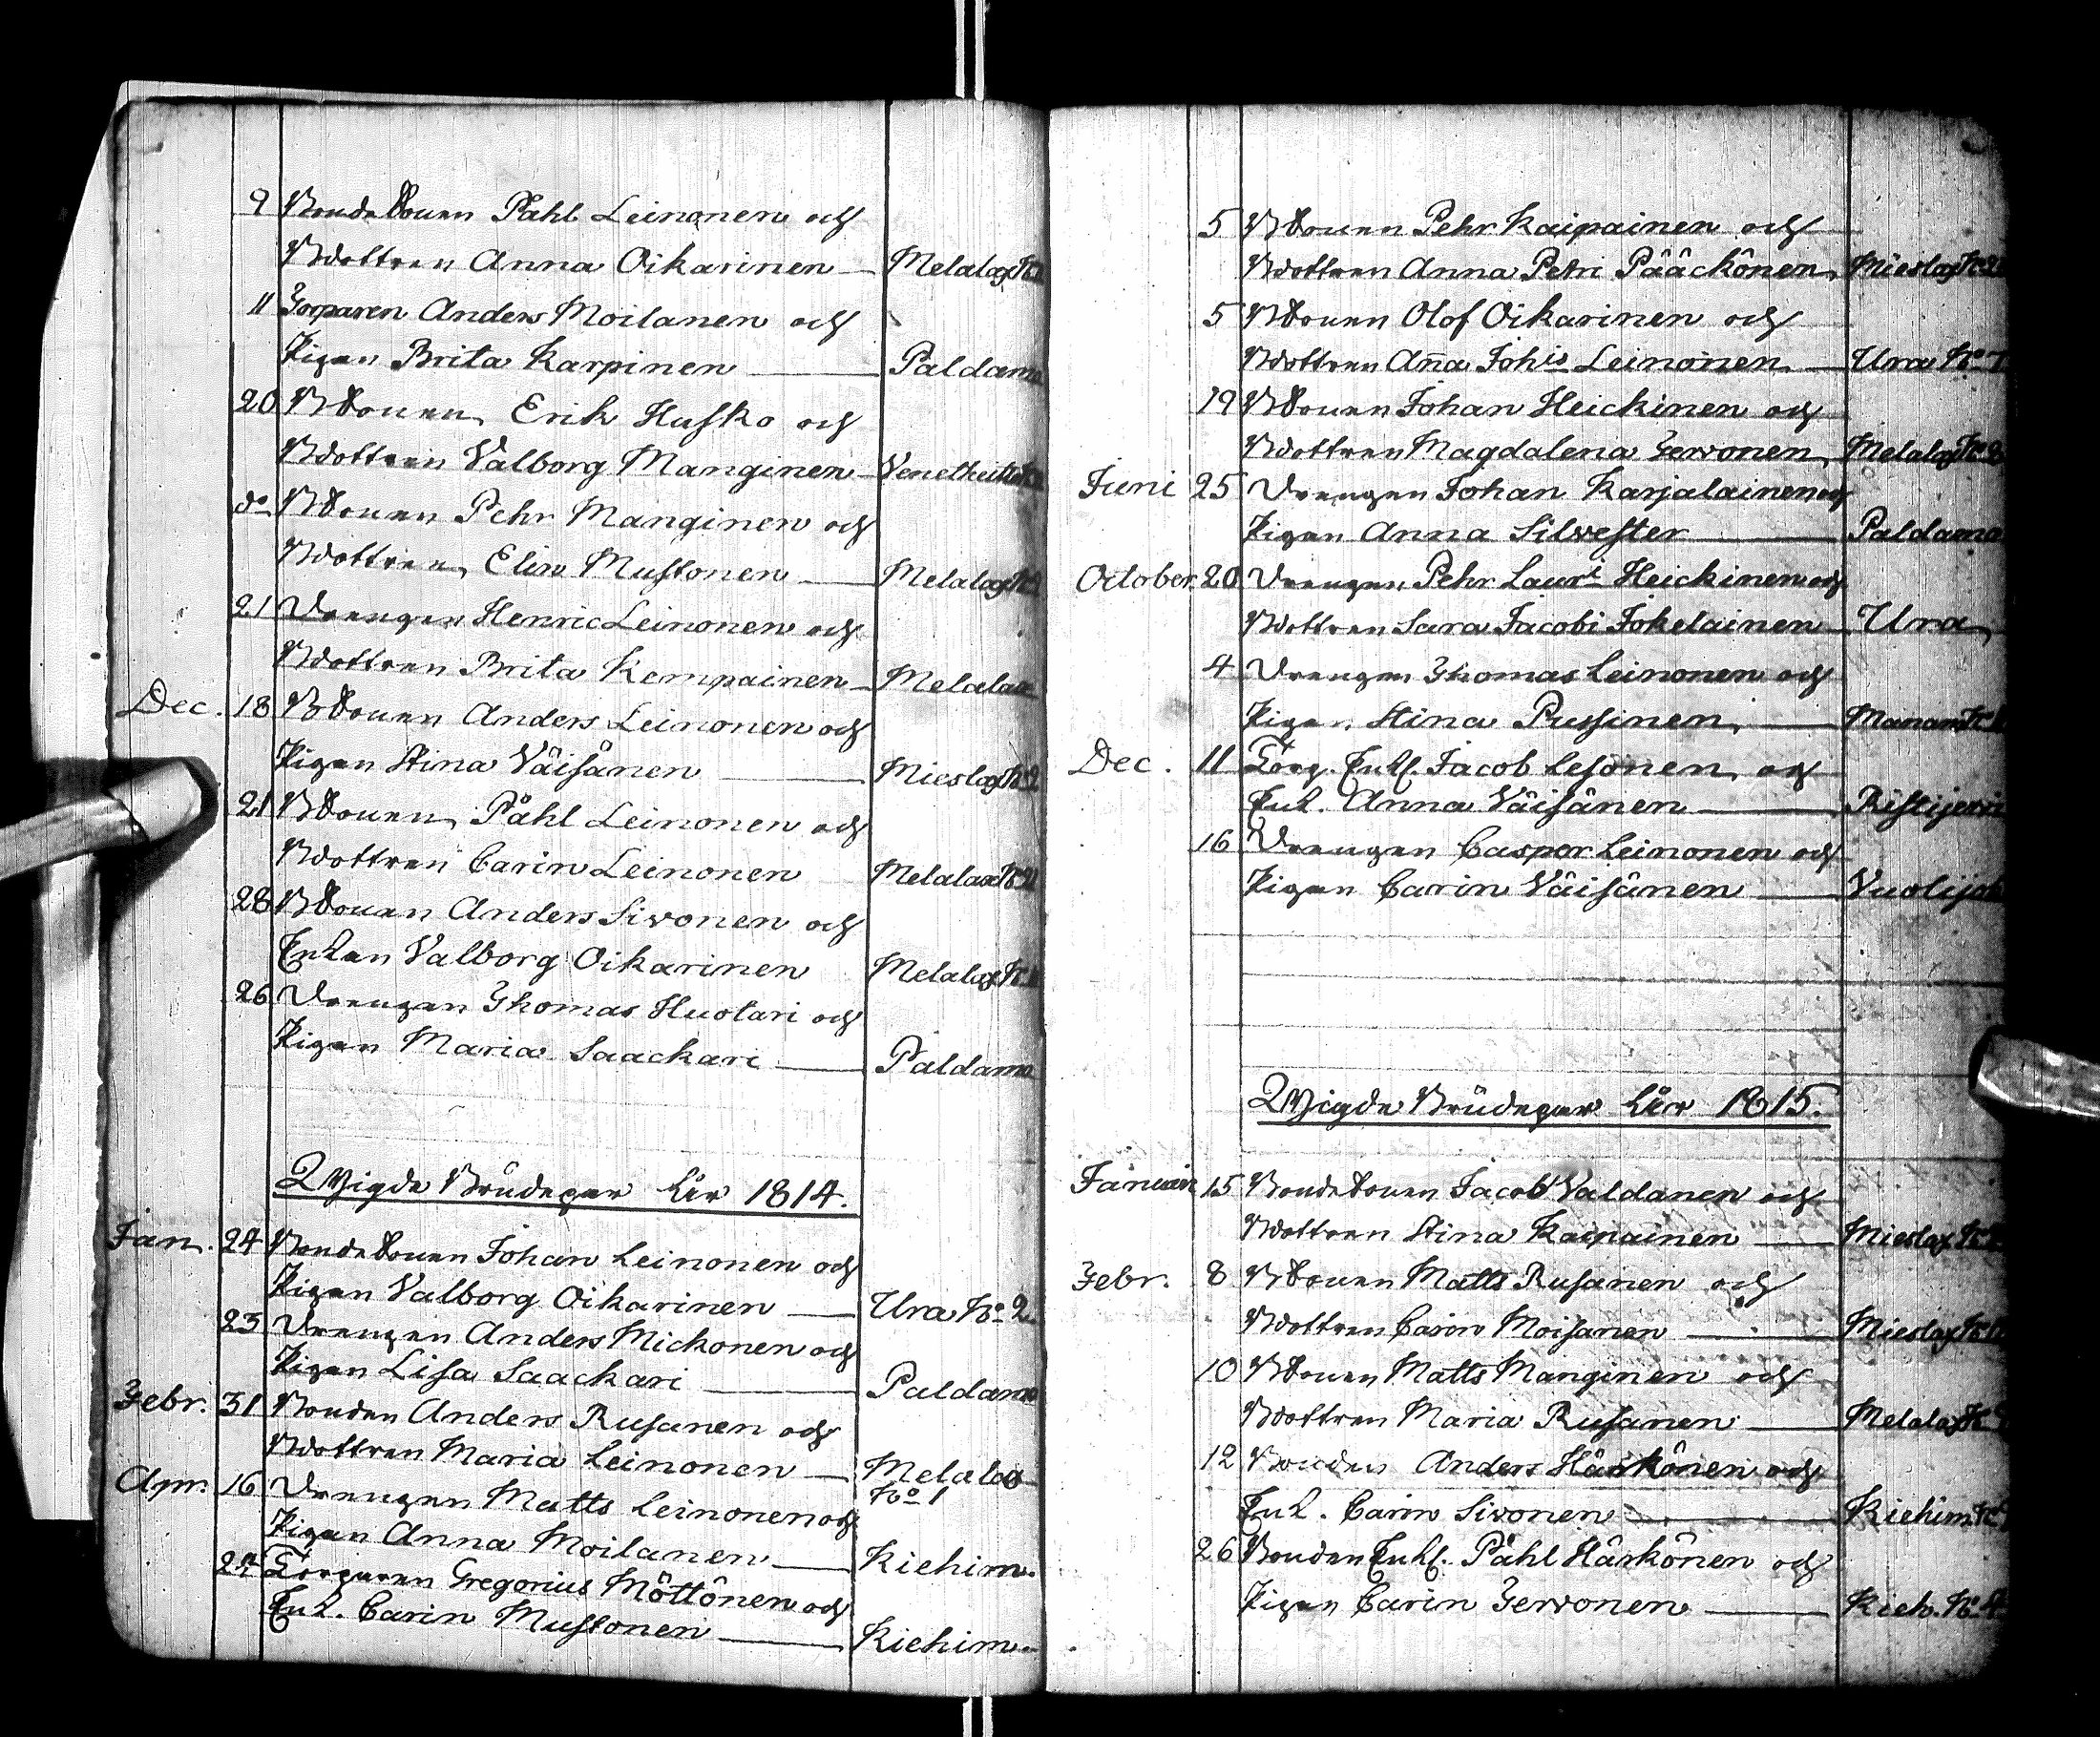 9 Bondesonen Påhl Leinonen och
Bdottren Anna Oikarinen — Melalax
11 Torparen Anders Moilanen och
Pigan Brita Karpinen — Paldamo
20 BSonen Erik Husko och
Bdottren Valborg Manginen — Venetheitto
do BSonen Pehr Manginen och
Bdottren Elin Mustonen — Melalax
21 Drengen Henric Leinonen och
Bdottren Brita Kempainen — Melalax
Dec. 18 BSonen Anders Leinonen och
Pigan Stina Väisänen — Mieslax No 2
21 BSonen Påhl Leinonen och
Bdottren Carin Leinonen Melalax
28 BSonen Anders Sivonen och
Enkan Valborg Oikarinen Melalax
26 Drengen Thomas Huotari och
Pigan Maria Saackari — Paldamo
Wigde Brudepar för 1814.
Jan. 24 Bondesonen Johan Leinonen och
Pigan Valborg Oikarinen — Ura No 2
23 Drengen Anders Mickonen och
Pigan Lisa Saackari — Paldamo
Febr. 31 Bonden Anders Rusanen och
Bdottren Maria Leinonen — Melalax
No 1
Apr. 16 Drengen Matts Leinonen och
Pigan Anna Moilanen — Kiehim.
24 Torparen Gregorius Möttönen och
Enk. Carin Mustonen — Kiehim.
5 BSonen Pehr Kaipainen och
Bdottren Anna Petri Pääckönen Mieslax
5 BSonen Olof Oikarinen och
Bdottren Anna Johis Leinonen — Ura No
19 BSonen Johan Heickinen och
Bdottren Magdalena Gervonen Melalax
Juni 25 Drengen Johan Karjalainen och
Pigan Anna Silvester — Paldamo
October. 20 Drengen Pehr Lauri Heickinen och
Bdottren Sara Jacobi Jokelainen Ura
4 Drengen Thomas Leinonen och
Pigan Stina Pussinen — Manam
Dec. 11 Torp. Enkl. Jacob Lesonen och
Enk. Anna Väisänen — Ristijervi
16 Drengen Casper Leinonen och
Pigan Carin Väisänen — Vuolijoki
Wigde Brudepar för 1815.
Januarii 15 Bondesonen Jacob Valdanen och
Bdottren Stina Kaipainen — Mieslax
Febr. 8 BSonen Matts Rusanen och
Bdottren Carin Moisanen — Mieslax
10 BSonen Matts Manginen och
Bdottren Maria Rusanen — Melalax
12 Bonden Anders Härkönen och
Enk. Carin Sivonen — Kiehim
26 Bonden Enkl. Påhl Härkönen och
Pigan Carin Gervonen — Kieh. No 4